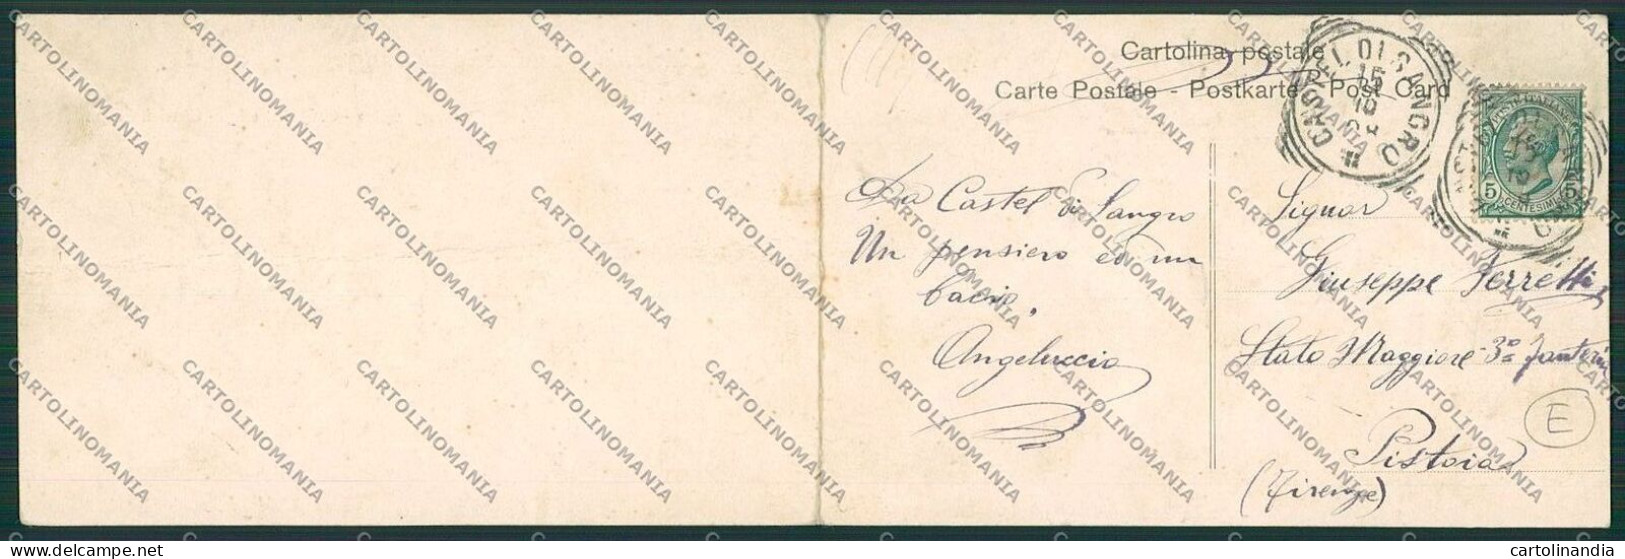 Cartolina postale
Carte Postale - Postkarte - Post Card
CASTEL DI SANGRO
15
10
POSTE ITALIANE
5 5
CENTESIMI
Da Castel di Sangro
Un pensiero ed un
bacio,
Angeluccio
Signor
Giuseppe Ferretti
Stato Maggiore 3º fanteria
Pistoia
(Firenze)
E
CARTOLINOMANIA
delcampe.net
cartolinandia